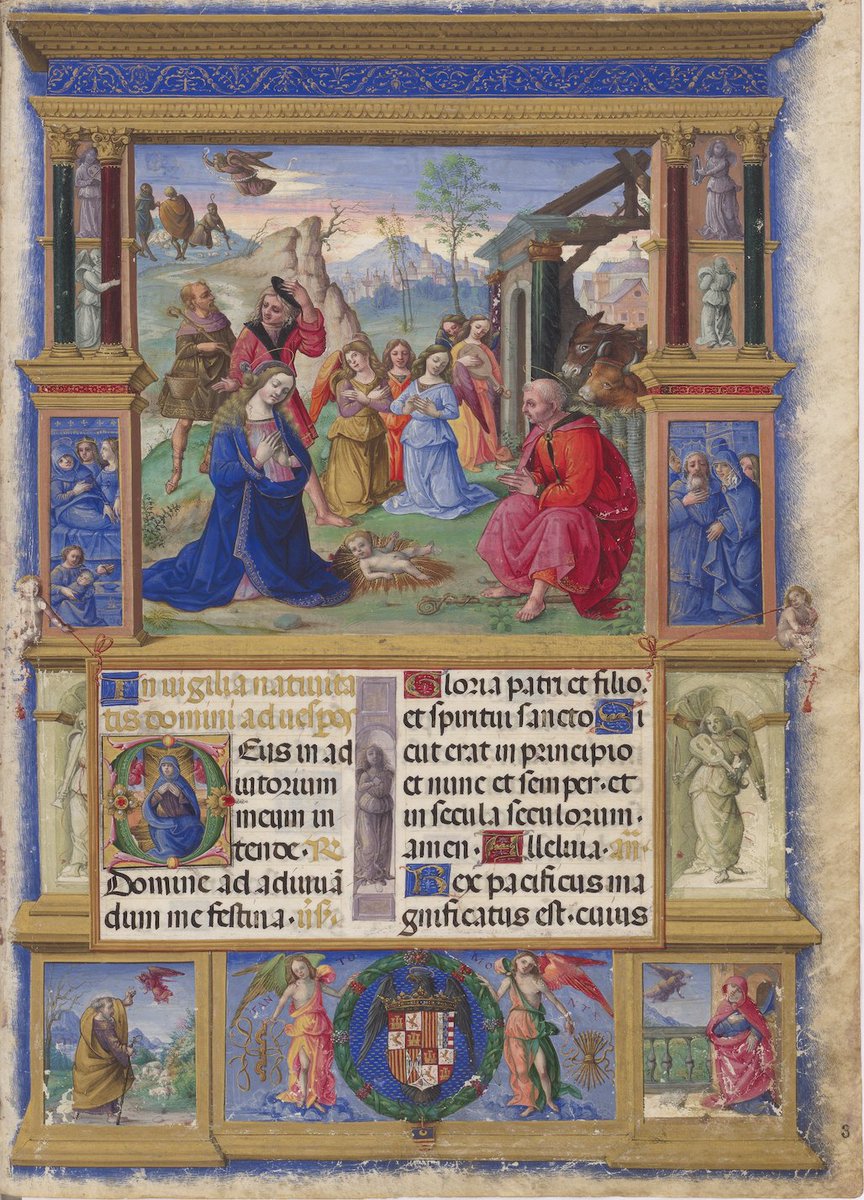 In uigilia natiuita
tis domini ad uesꝑos
Deus in ad
iutorium
meum in
tende· ℞
Domine ad adiuuā
dum me festina·
Gloria patri et filio.
et spiritui sancto Si
cut erat in principio
et nunc et semper· et
in secula seculorum·
amen· Alleluia· añ·
Rex pacificus ma
gnificatus est· cuius
TAN TO MO NTA
3